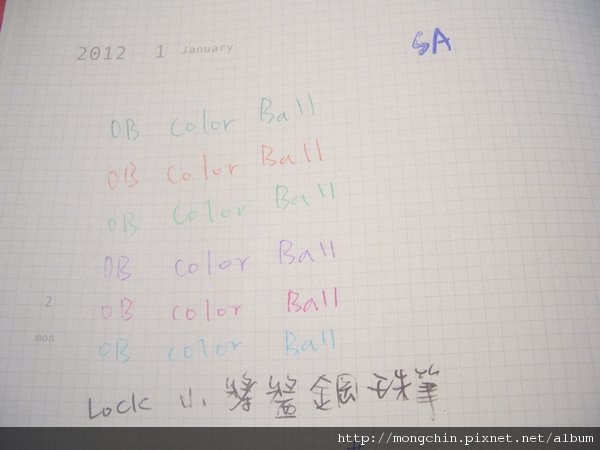 2012 1 January
SA
OB color Ball
OB color Ball
OB color Ball
OB color Ball
2
OB color Ball
mon
OB color Ball
Lock 小 鋼珠筆
http://mongchin.pixnet.net/album